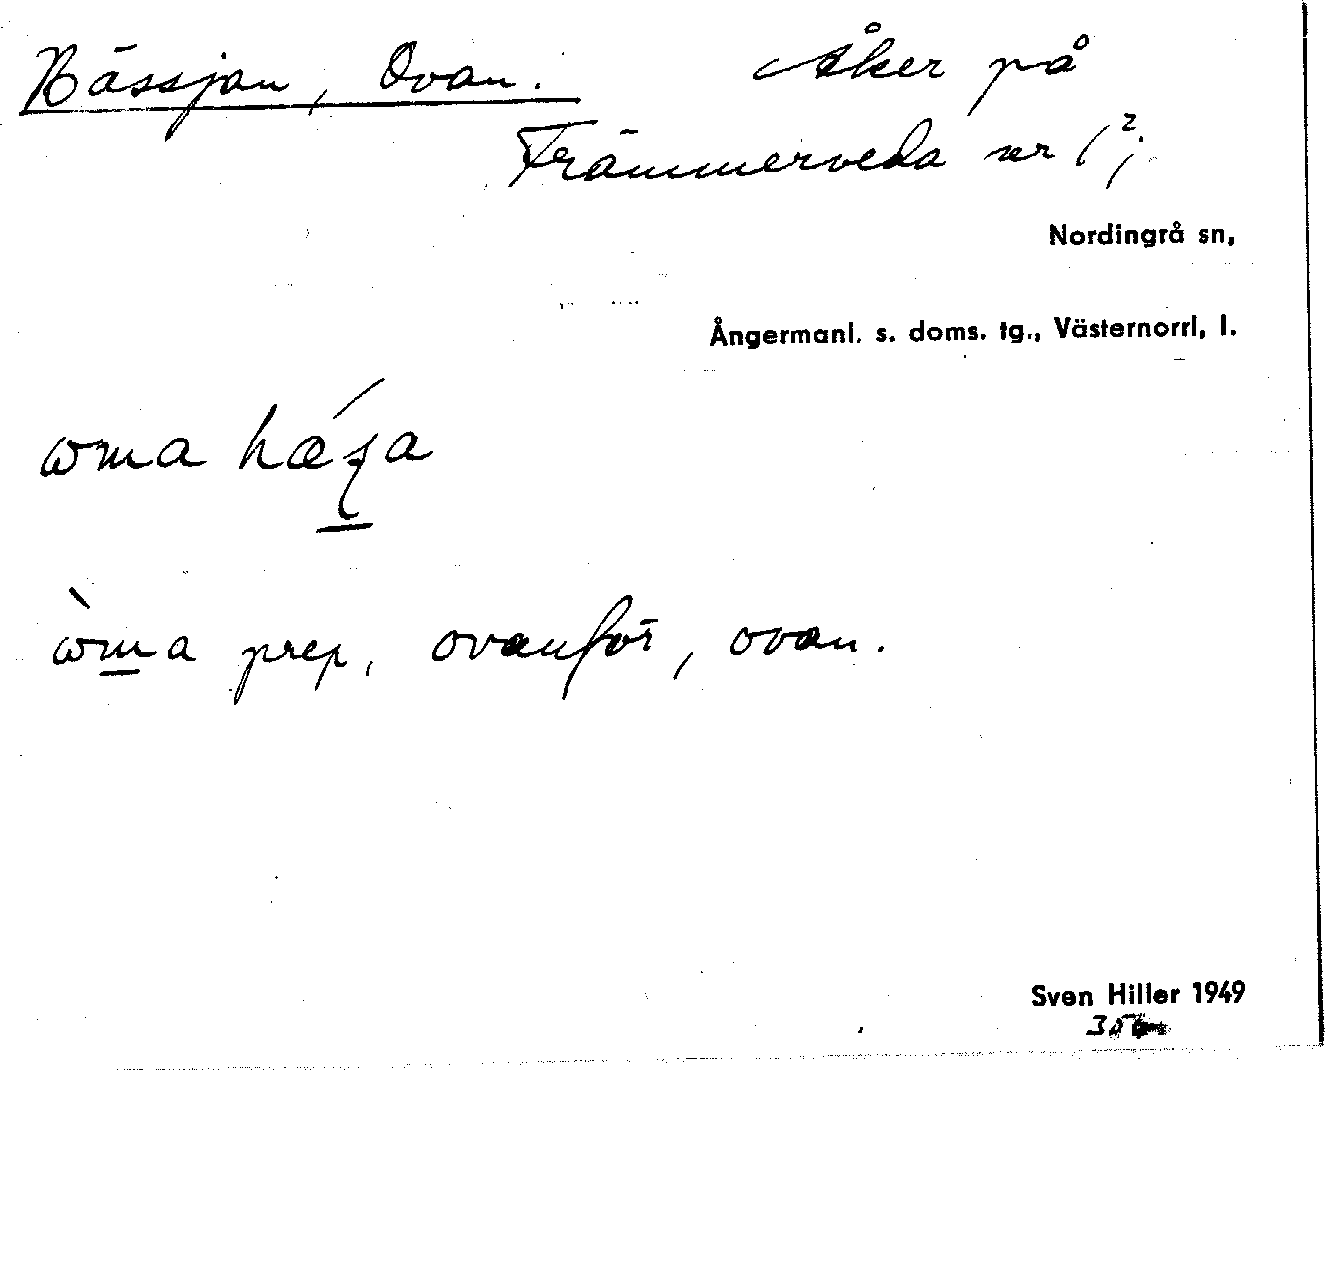 Hässjan, Ovan. Åker på
Främmerveda nr 1²;
Nordingrå sn,
Ångermanl. s. doms. tg., Västernorrl, l.
prep, ovanför, ovan.
Sven Hiller 1949